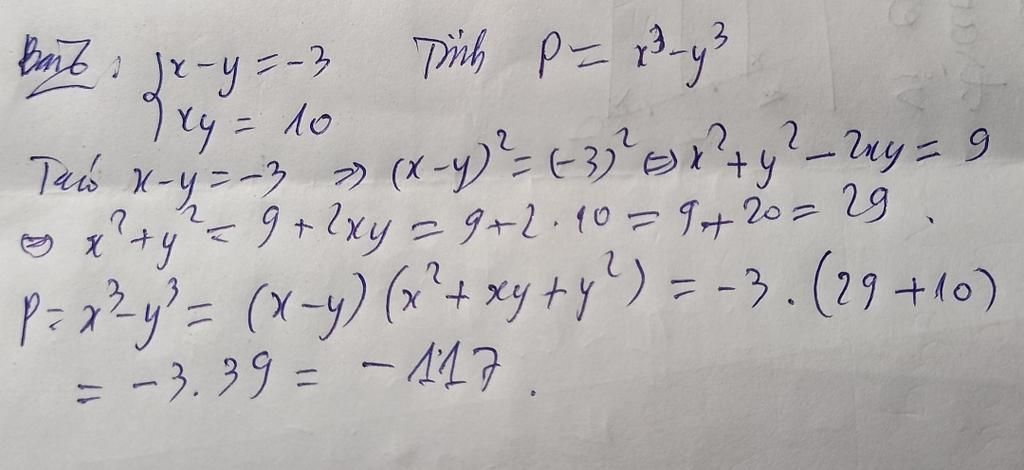 Biết: { x - y = -3 Tính P = x³ - y³
xy = 10
Ta có x - y = -3 => (x - y)² = (-3)² <=> x² + y² - 2xy = 9
<=> x² + y² = 9 + 2xy = 9 + 2 . 10 = 9 + 20 = 29 .
P = x³ - y³ = (x - y)(x² + xy + y²) = -3 . (29 + 10)
= -3 . 39 = -117 .